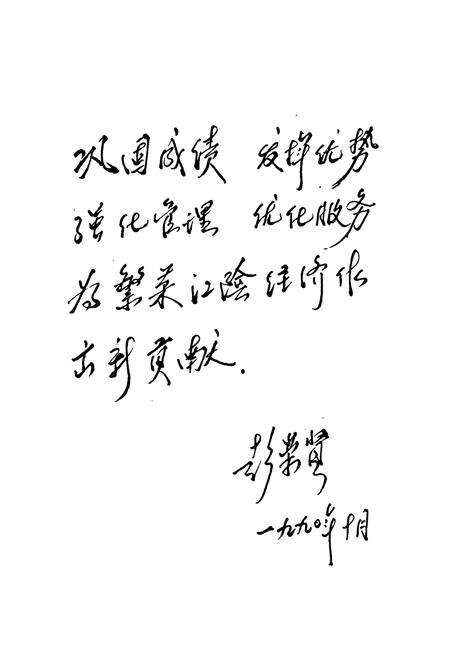 巩固成绩 发挥优势
强化管理 优化服务
为繁荣江陰经济作
出新贡献.
彭荣贤
一九九〇年十月